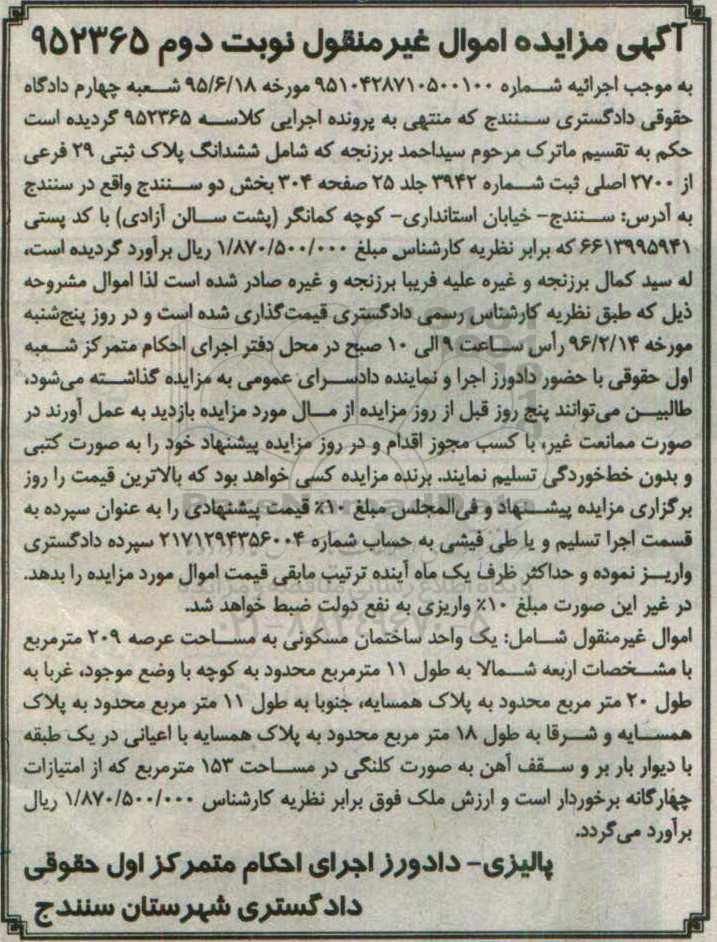 آگهی مزایده اموال غیرمنقول نوبت دوم ۹۵۲۳۶۵
به موجب اجرائیه شماره ۹۵۱۰۴۲۸۷۱۰۵۰۰۱۰۰ مورخه ۹۵/۶/۱۸ شعبه چهارم دادگاه
حقوقی دادگستری سنندج که منتهی به پرونده اجرایی کلاسه ۹۵۲۳۶۵ گردیده است
حکم به تقسیم ماترک مرحوم سیداحمد برزنجه که شامل ششدانگ پلاک ثبتی ۲۹ فرعی
از ۲۷۰۰ اصلی ثبت شماره ۳۹۴۲ جلد ۲۵ صفحه ۳۰۴ بخش دو سنندج واقع در سنندج
به آدرس: سنندج- خیابان استانداری- کوچه کمانگر (پشت سالن آزادی) با کد پستی
۶۶۱۳۹۹۵۹۴۱ که برابر نظریه کارشناس مبلغ ۱/۸۷۰/۵۰۰/۰۰۰ ریال برآورد گردیده است،
له سید کمال برزنجه و غیره علیه فریبا برزنجه و غیره صادر شده است لذا اموال مشروحه
ذیل که طبق نظریه کارشناس رسمی دادگستری قیمت‌گذاری شده است و در روز پنج‌شنبه
مورخه ۹۶/۲/۱۴ رأس ساعت ۹ الی ۱۰ صبح در محل دفتر اجرای احکام متمرکز شعبه
اول حقوقی با حضور دادورز اجرا و نماینده دادسرای عمومی به مزایده گذاشته می‌شود،
طالبین می‌توانند پنج روز قبل از روز مزایده از مال مورد مزایده بازدید به عمل آورند در
صورت ممانعت غیر، با کسب مجوز اقدام و در روز مزایده پیشنهاد خود را به صورت کتبی
و بدون خط‌خوردگی تسلیم نمایند. برنده مزایده کسی خواهد بود که بالاترین قیمت را روز
برگزاری مزایده پیشنهاد و فی‌المجلس مبلغ ۱۰٪ قیمت پیشنهادی را به عنوان سپرده به
قسمت اجرا تسلیم و یا طی فیشی به حساب شماره ۲۱۷۱۲۹۴۳۵۶۰۰۴ سپرده دادگستری
واریز نموده و حداکثر ظرف یک ماه آینده ترتیب مابقی قیمت اموال مورد مزایده را بدهد.
در غیر این صورت مبلغ ۱۰٪ واریزی به نفع دولت ضبط خواهد شد.
اموال غیرمنقول شامل: یک واحد ساختمان مسکونی به مساحت عرصه ۲۰۹ مترمربع
با مشخصات اربعه شمالا به طول ۱۱ مترمربع محدود به کوچه با وضع موجود، غربا به
طول ۲۰ متر مربع محدود به پلاک همسایه، جنوبا به طول ۱۱ متر مربع محدود به پلاک
همسایه و شرقا به طول ۱۸ متر مربع محدود به پلاک همسایه با اعیانی در یک طبقه
با دیوار بار بر و سقف آهن به صورت کلنگی در مساحت ۱۵۳ مترمربع که از امتیازات
چهارگانه برخوردار است و ارزش ملک فوق برابر نظریه کارشناس ۱/۸۷۰/۵۰۰/۰۰۰ ریال
برآورد می‌گردد.
پالیزی- دادورز اجرای احکام متمرکز اول حقوقی
دادگستری شهرستان سنندج
ParsNamadData